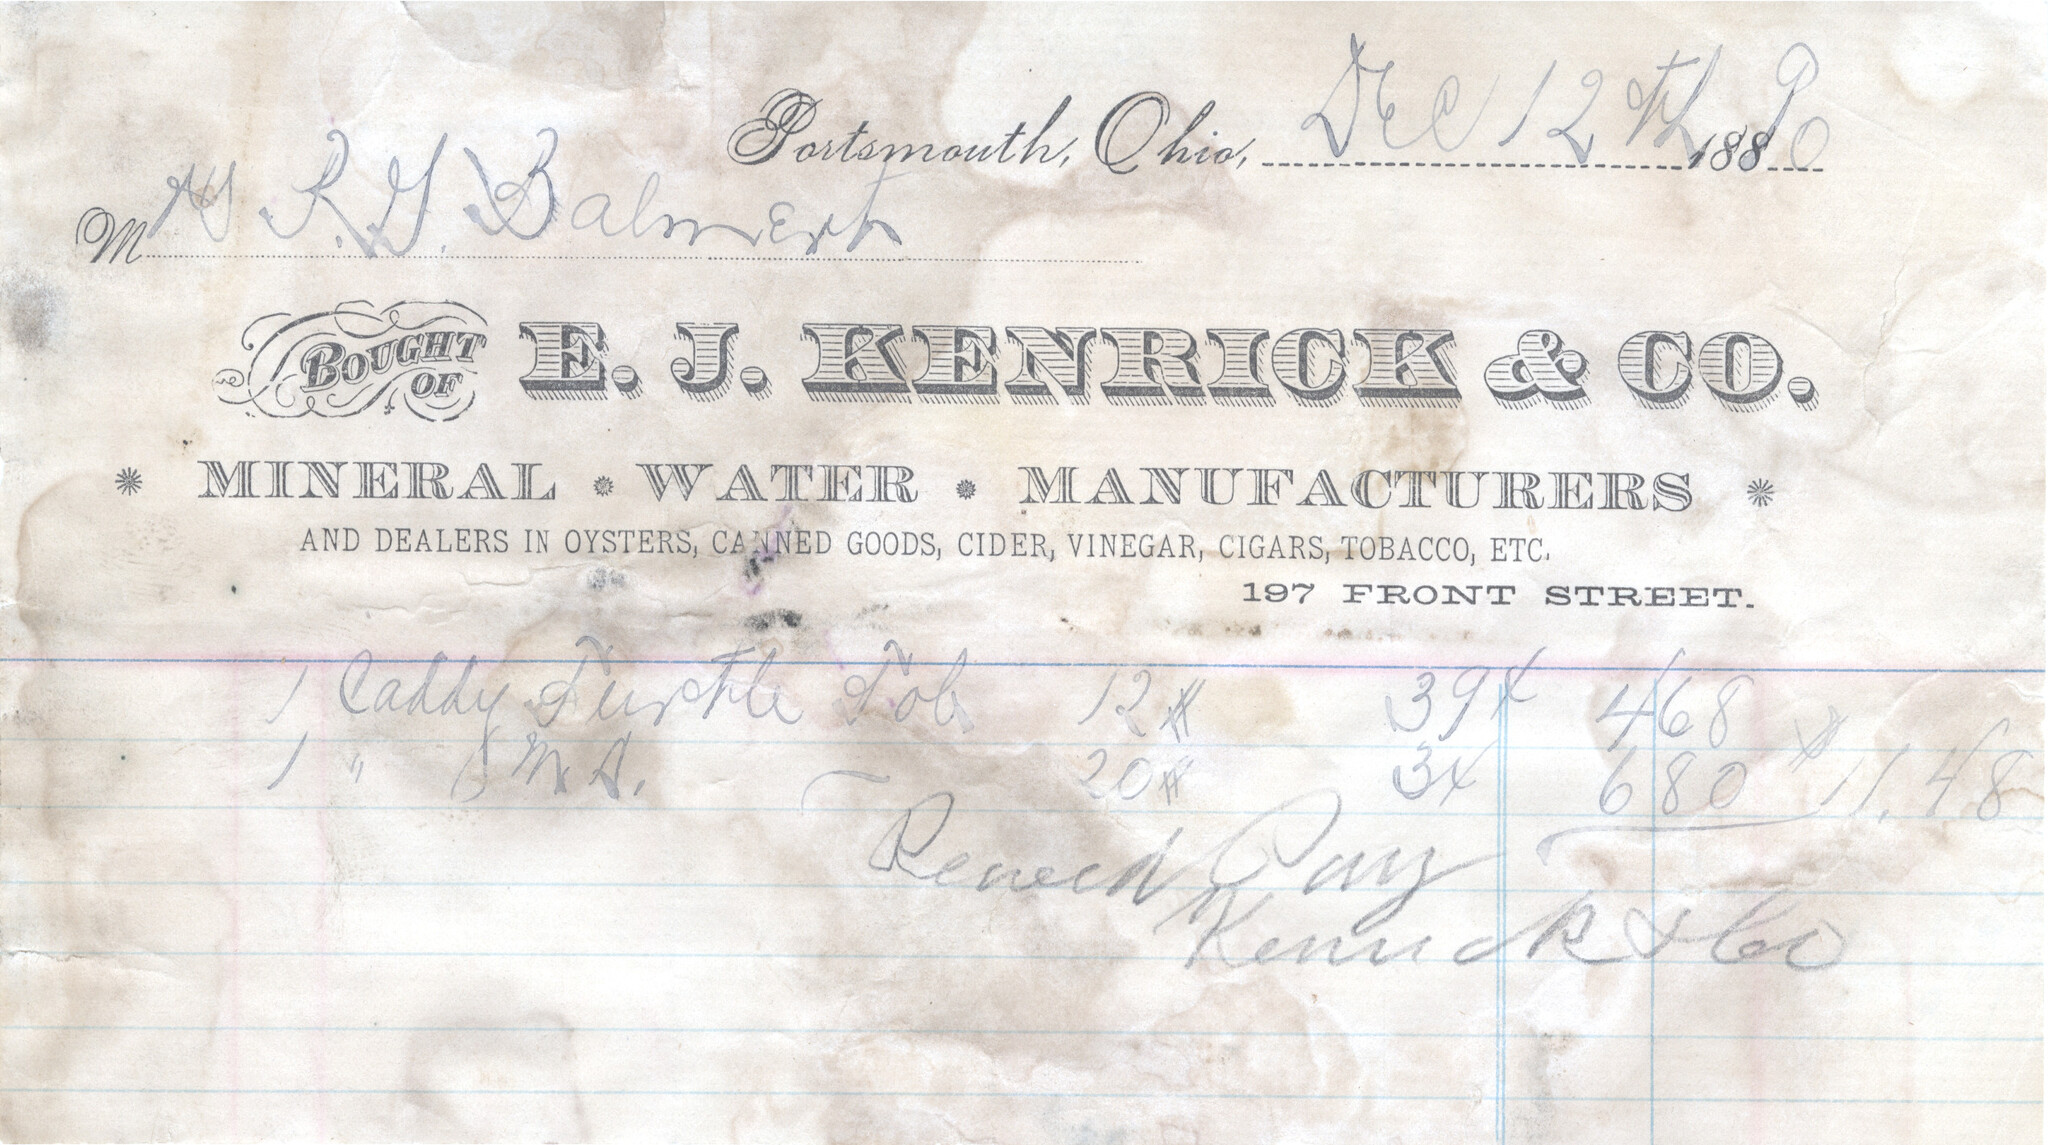 Portsmouth, Ohio, Dec 12th 1890
Mrs R. G. Balmert
BOUGHT OF E. J. KENRICK & CO.
MINERAL WATER MANUFACTURERS
AND DEALERS IN OYSTERS, CANNED GOODS, CIDER, VINEGAR, CIGARS, TOBACCO, ETC.
197 FRONT STREET.
1 Caddy Turtle Tob 12# 39¢ 468
1 " 20# 34 680 $11.48
Pay
Kenrick & Co